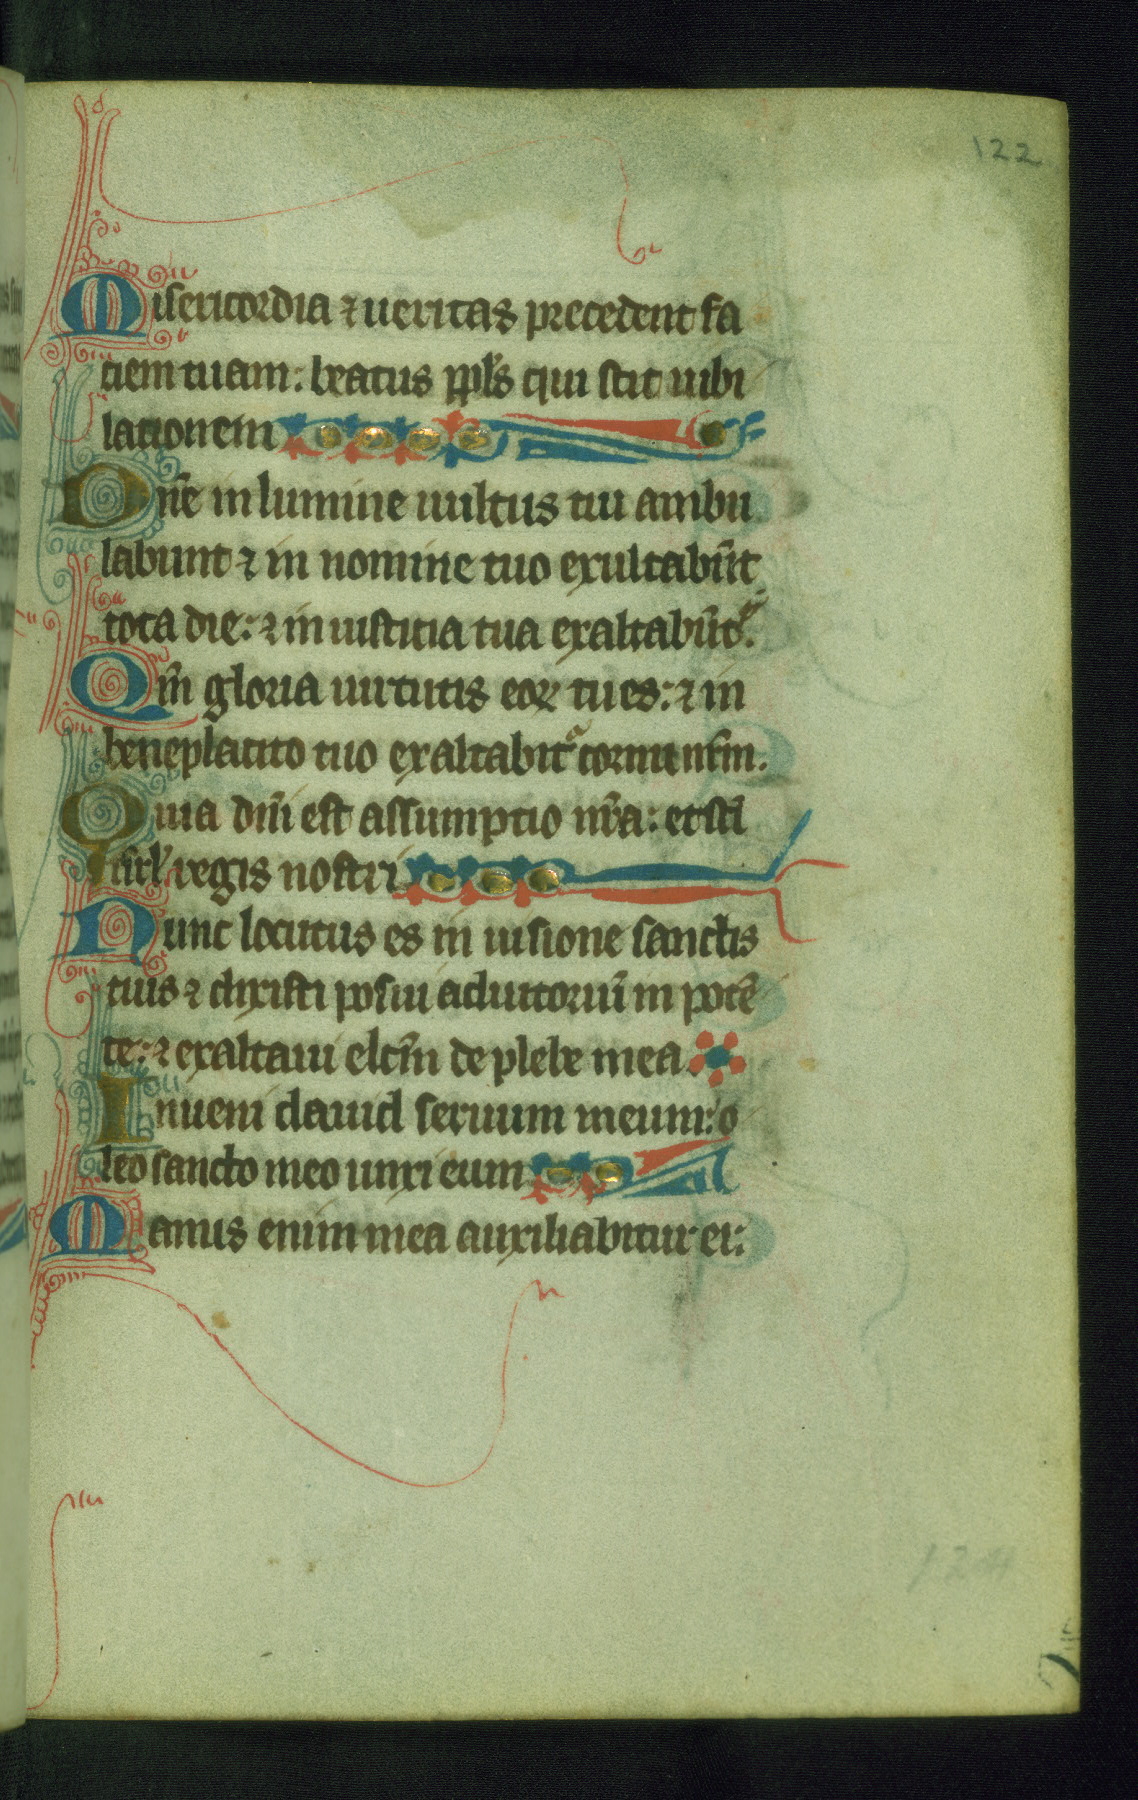 122
Misericordia ⁊ ueritas precedent fa
ciem tuam: beatus ppl̃s qui scit iubi
lationem
Dñe in lumine uultus tui ambu
labunt ⁊ in nomine tuo exultabũt
tota die: ⁊ in iusticia tua exaltabũtᷣ.
Qm̃ gloria uirtutis eoꝝ tu es: ⁊ in
beneplacito tuo exaltabitᷣ cornu nr̃m.
Quia dñi est assumptio nr̃a: et sc̃i
isrl̃ regis nostri
Nunc locutus es in uisione sanctis
tuis ⁊ dixisti posui adiutoriũ in potẽ
te: ⁊ exaltaui elc̃m de plebe mea.
Inueni dauid seruum meum: o
leo sancto meo unxi eum
Manus enim mea auxiliabitur ei: